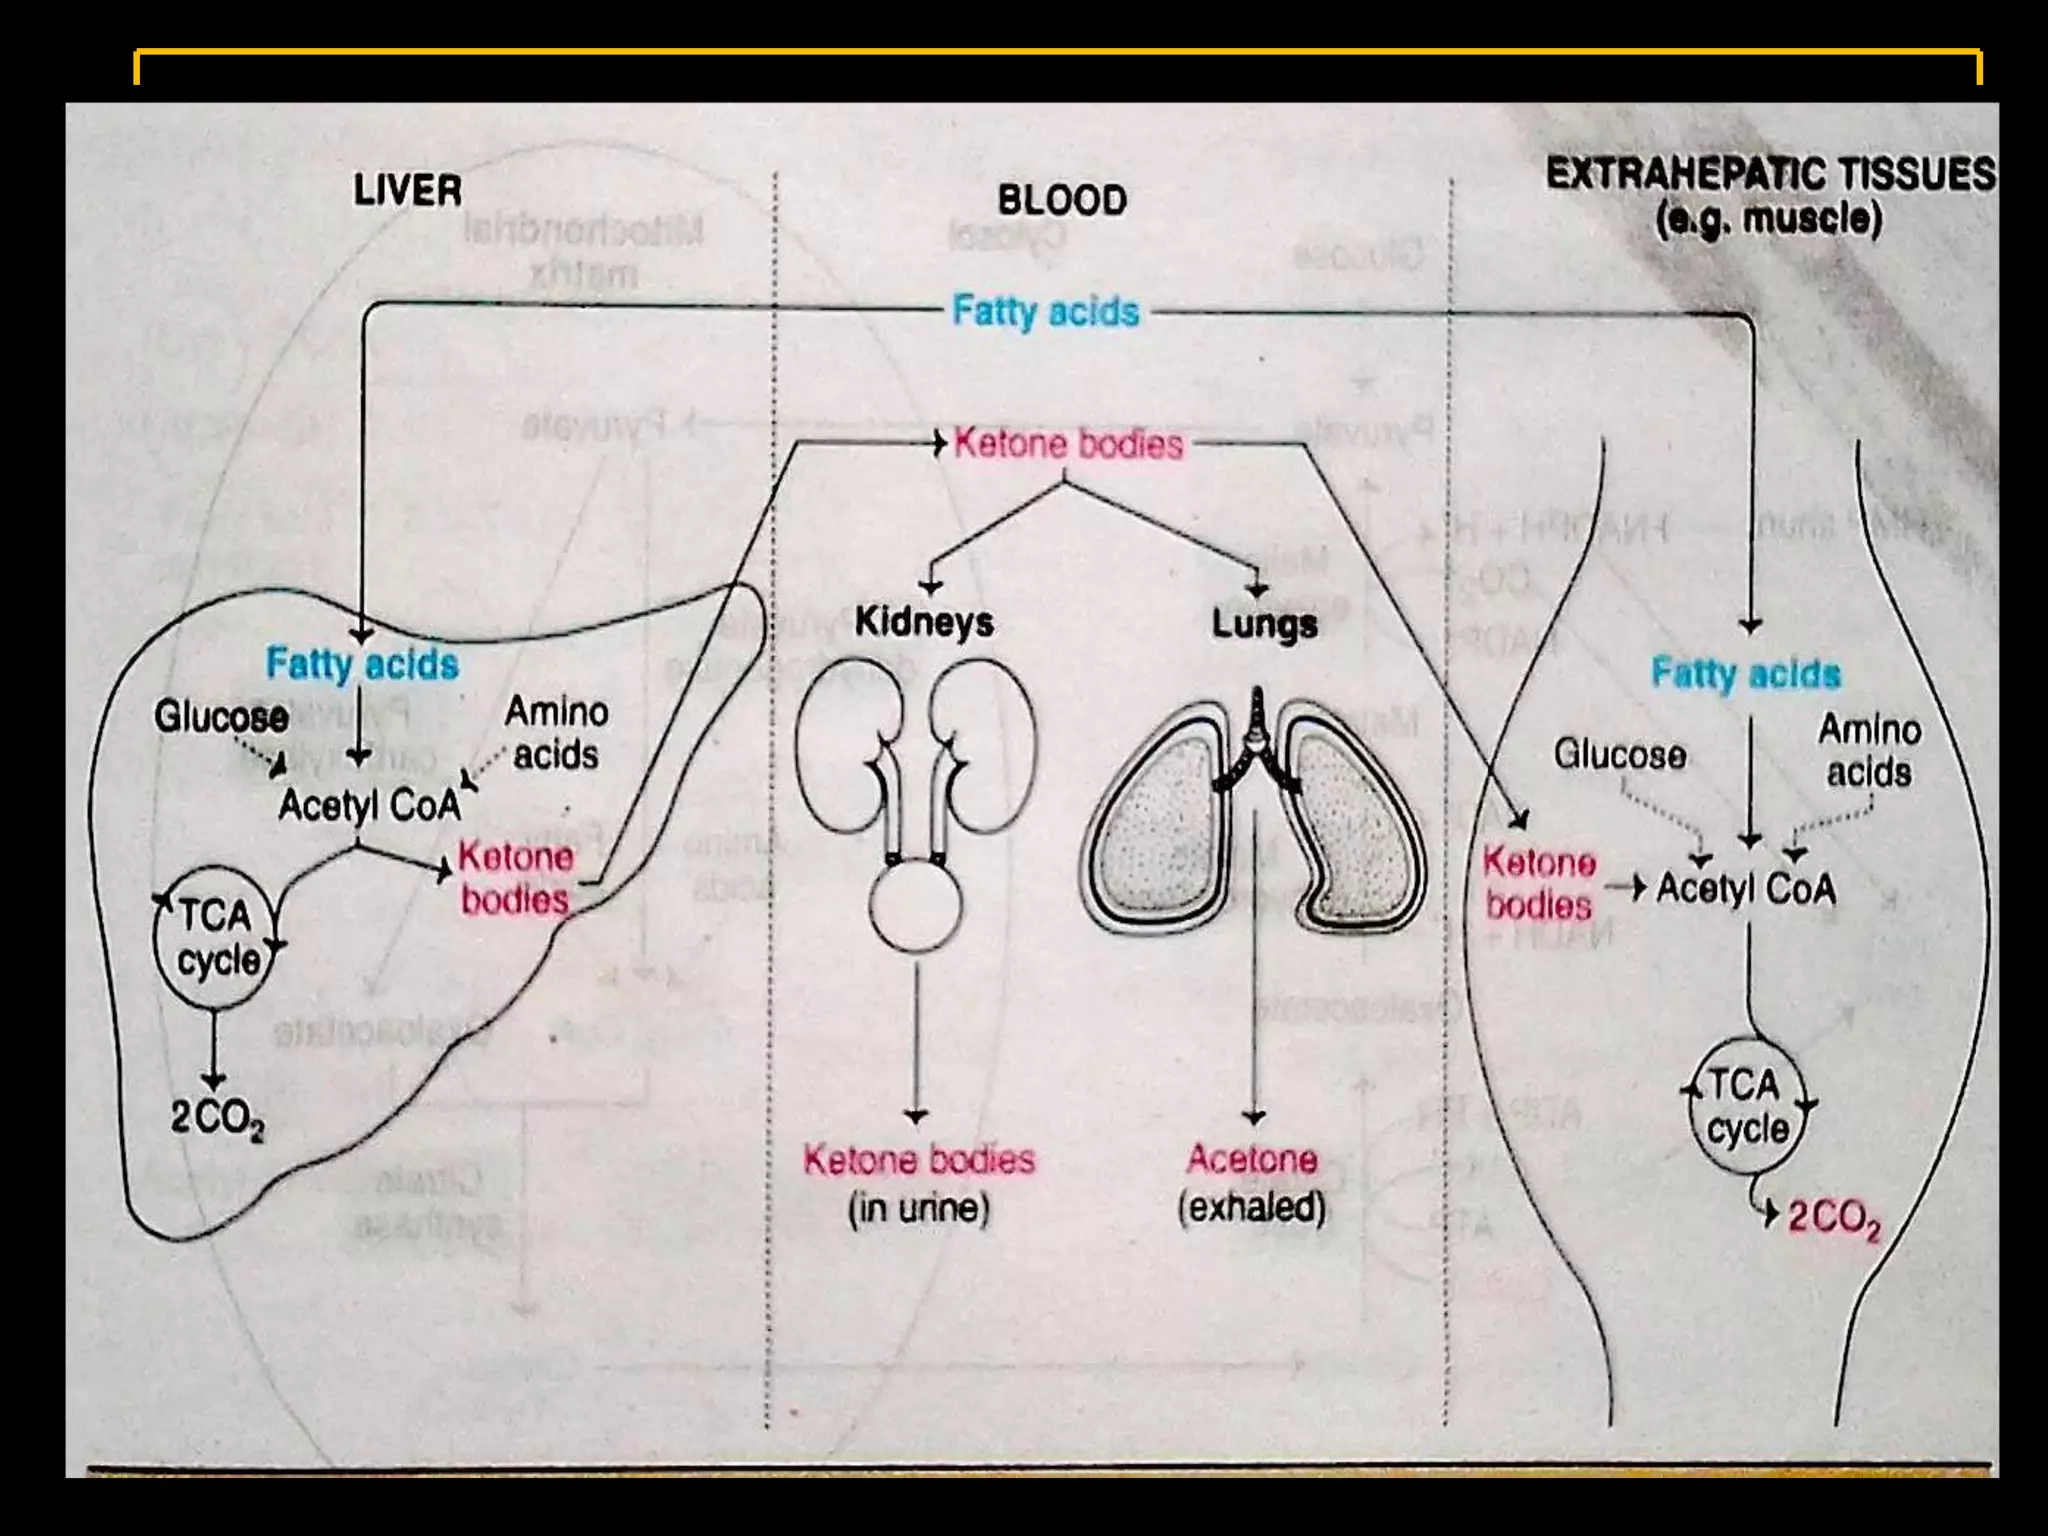 LIVER
BLOOD
EXTRAHEPATIC TISSUES
(e.g. muscle)
Fatty acids
Ketone bodies
Kidneys
Lungs
Fatty acids
Glucose
Amino
acids
Acetyl CoA
Ketone
bodies
TCA
cycle
2CO₂
Ketone bodies
(in urine)
Acetone
(exhaled)
Fatty acids
Glucose
Amino
acids
Ketone
bodies
Acetyl CoA
TCA
cycle
2CO₂